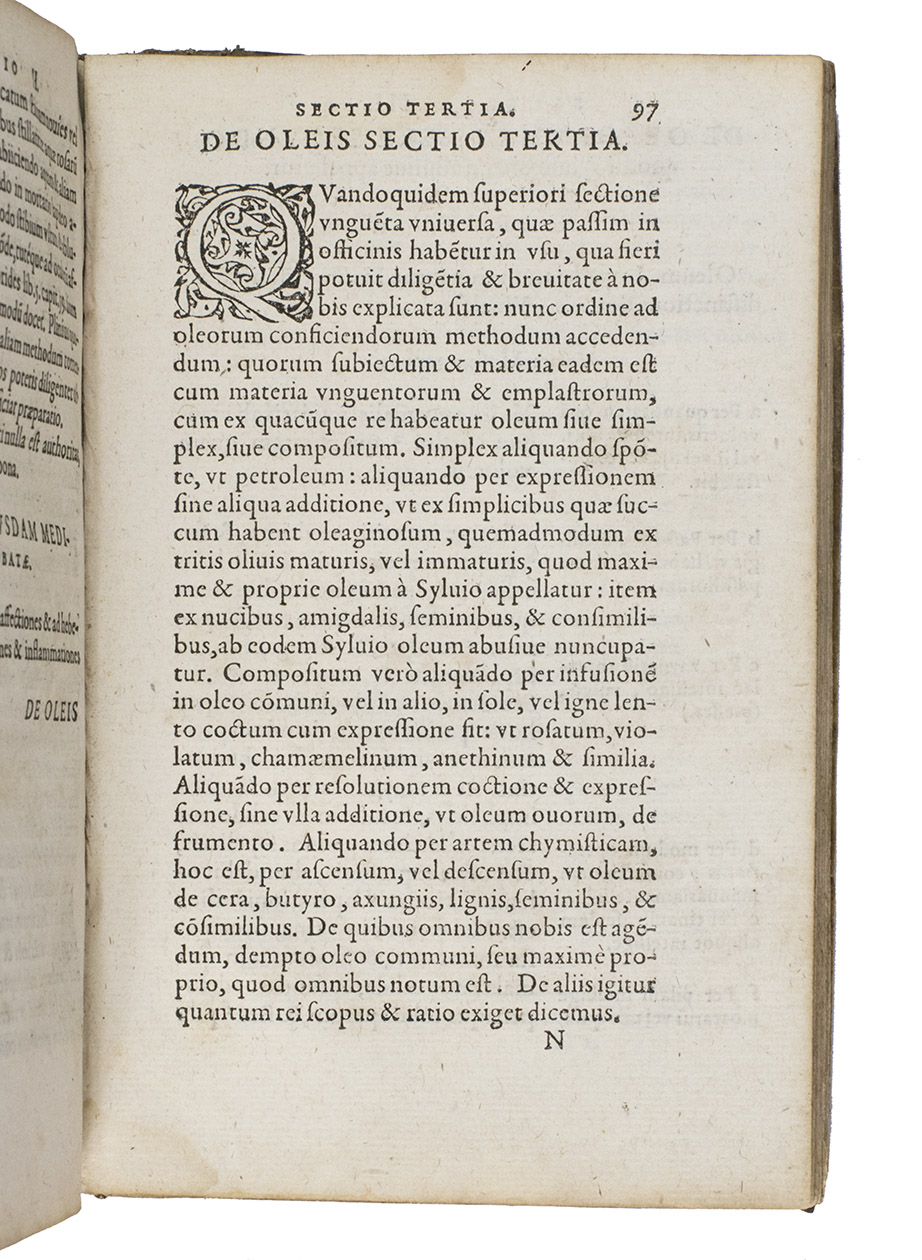 catum
bus stillant,
aliam
do in mortario
modũ docet.
aliam methodum
os poteris diligenter
præparatio.
nulla est authoritas,
bona.
VSDAM MEDI-
BATÆ,
affectiones & ad hebe-
nes & inflammationes
DE OLEIS
SECTIO TERTIA. 97
DE OLEIS SECTIO TERTIA.
QVandoquidem ſuperiori ſectione
vnguẽta vniuerſa, quæ paſſim in
officinis habẽtur in vſu, qua fieri
potuit diligẽtia & breuitate à no-
bis explicata ſunt: nunc ordine ad
oleorum conficiendorum methodum acceden-
dum,: quorum ſubiectum & materia eadem eſt
cum materia vnguentorum & emplaſtrorum,
cùm ex quacũque re habeatur oleum ſiue ſim-
plex, ſiue compoſitum. Simplex aliquando ſpõ-
te, vt petroleum: aliquando per expreſſionem
ſine aliqua additione, vt ex ſimplicibus quæ ſuc-
cum habent oleaginoſum, quemadmodum ex
tritis oliuis maturis, vel immaturis, quod maxi-
me & proprie oleum à Syluio appellatur: item
ex nucibus, amigdalis, ſeminibus, & conſimili-
bus, ab eodem Syluio oleum abuſiue nuncupa-
tur. Compoſitum verò aliquãdo per infuſionẽ
in oleo cõmuni, vel in alio, in ſole, vel igne len-
to coctum cum expreſſione fit: vt roſatum, vio-
latum, chamæmelinum, anethinum & ſimilia.
Aliquãdo per reſolutionem coctione & expreſ-
ſione, ſine vlla additione, vt oleum ouorum, de
frumento. Aliquando per artem chymiſticam,
hoc eſt, per aſcenſum, vel deſcenſum, vt oleum
de cera, butyro, axungiis, lignis, ſeminibus, &
cõſimilibus. De quibus omnibus nobis eſt agẽ-
dum, dempto oleo communi, ſeu maximè pro-
prio, quod omnibus notum eſt. De aliis igitur
quantum rei ſcopus & ratio exiget dicemus.
N